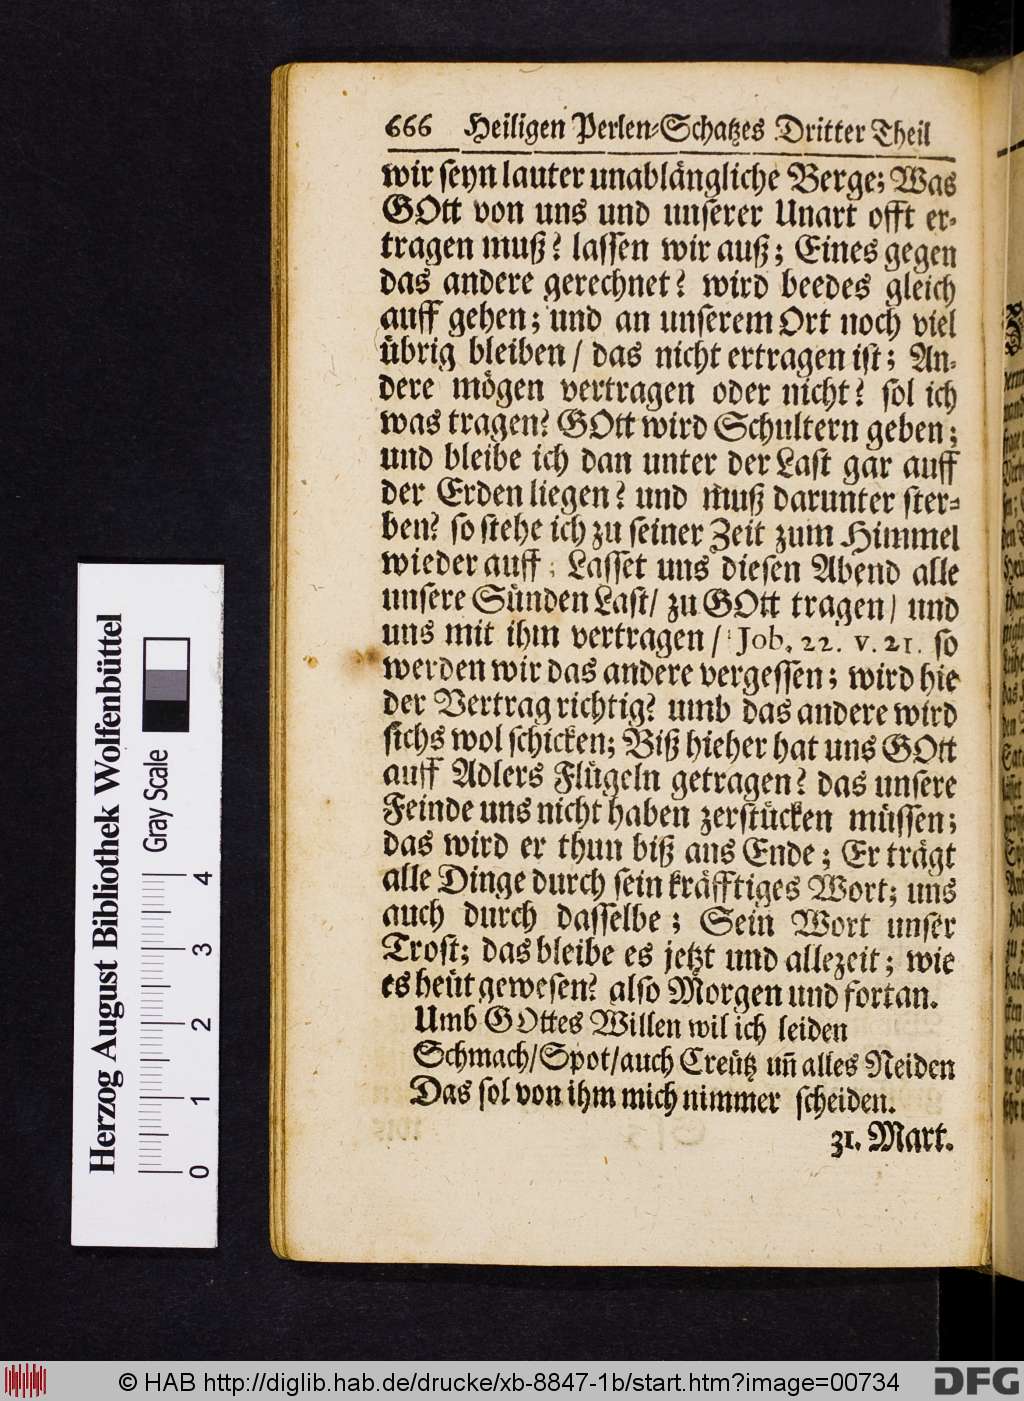 666 Heiligen Perlen-Schatzes Dritter Theil
wir seyn lauter unablängliche Berge; Was
GOtt von uns und unserer Unart offt er-
tragen muß? lassen wir auß; Eines gegen
das andere gerechnet? wird beedes gleich
auff gehen; und an unserem Ort noch viel
übrig bleiben / das nicht ertragen ist; An-
dere mögen vertragen oder nicht? sol ich
was tragen? GOtt wird Schultern geben;
und bleibe ich dan unter der Last gar auff
der Erden liegen? und muß darunter ster-
ben? so stehe ich zu seiner Zeit zum Himmel
wieder auff; Lasset uns diesen Abend alle
unsere Sünden Last / zu GOtt tragen / und
uns mit ihm vertragen / Job. 22. v. 21. so
werden wir das andere vergessen; wird hie
der Vertrag richtig? umb das andere wird
sichs wol schicken; Biß hieher hat uns GOtt
auff Adlers Flügeln getragen? das unsere
Feinde uns nicht haben zerstücken müssen;
das wird er thun biß ans Ende; Er trägt
alle Dinge durch sein kräfftiges Wort; uns
auch durch dasselbe; Sein Wort unser
Trost; das bleibe es jetzt und allezeit; wie
es heüt gewesen? also Morgen und fortan.
Umb GOttes Willen wil ich leiden
Schmach/Spot/auch Creütz uñ alles Neiden
Das sol von ihm mich nimmer scheiden.
31. Mart.
Herzog August Bibliothek Wolfenbüttel
Gray Scale
0 1 2 3 4
© HAB http://diglib.hab.de/drucke/xb-8847-1b/start.htm?image=00734
DFG